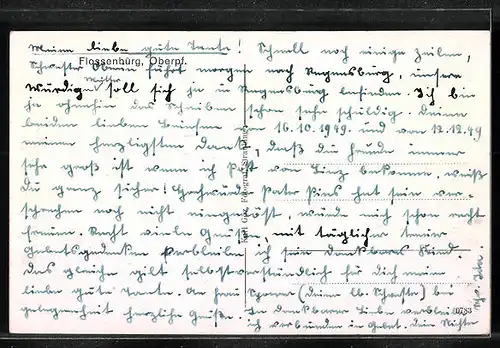 Meine liebe gute Tante! Schnell noch einige Zeilen,
Flossenbürg, Oberpf.
Schwester Oberin fährt morgen nach Regensburg, unsere
Würdig Mutter soll sich ja in Regensburg befinden. Ich bin
ja ohnehin das Schreiben schon sehr schuldig. Deinen
beiden lieben Briefen vom 16.10.1949 und vom 12.12.49
meinen herzlichsten Dank, daß die Freude immer
sehr groß ist wenn ich Post von Linz bekomme, weißt
Du ganz sicher! Hochwürd. Pater Pius hat sein Ver-
sprechen noch nicht eingelöst, würde mich schon recht
freuen. Recht viele Grüße, mit täglicher treuer
Gebetsgedenken verbleibe ich Dein dankbares Kind.
Das gleiche gilt selbstverständlich für Dich meine
liebe gute Tante. An Frau (Deine lb. Schwester) bei
gelegenheit herzliche Grüße. In dankbarer Liebe verbleibe
ich verbunden im Gebet. Dein Nichte
10783